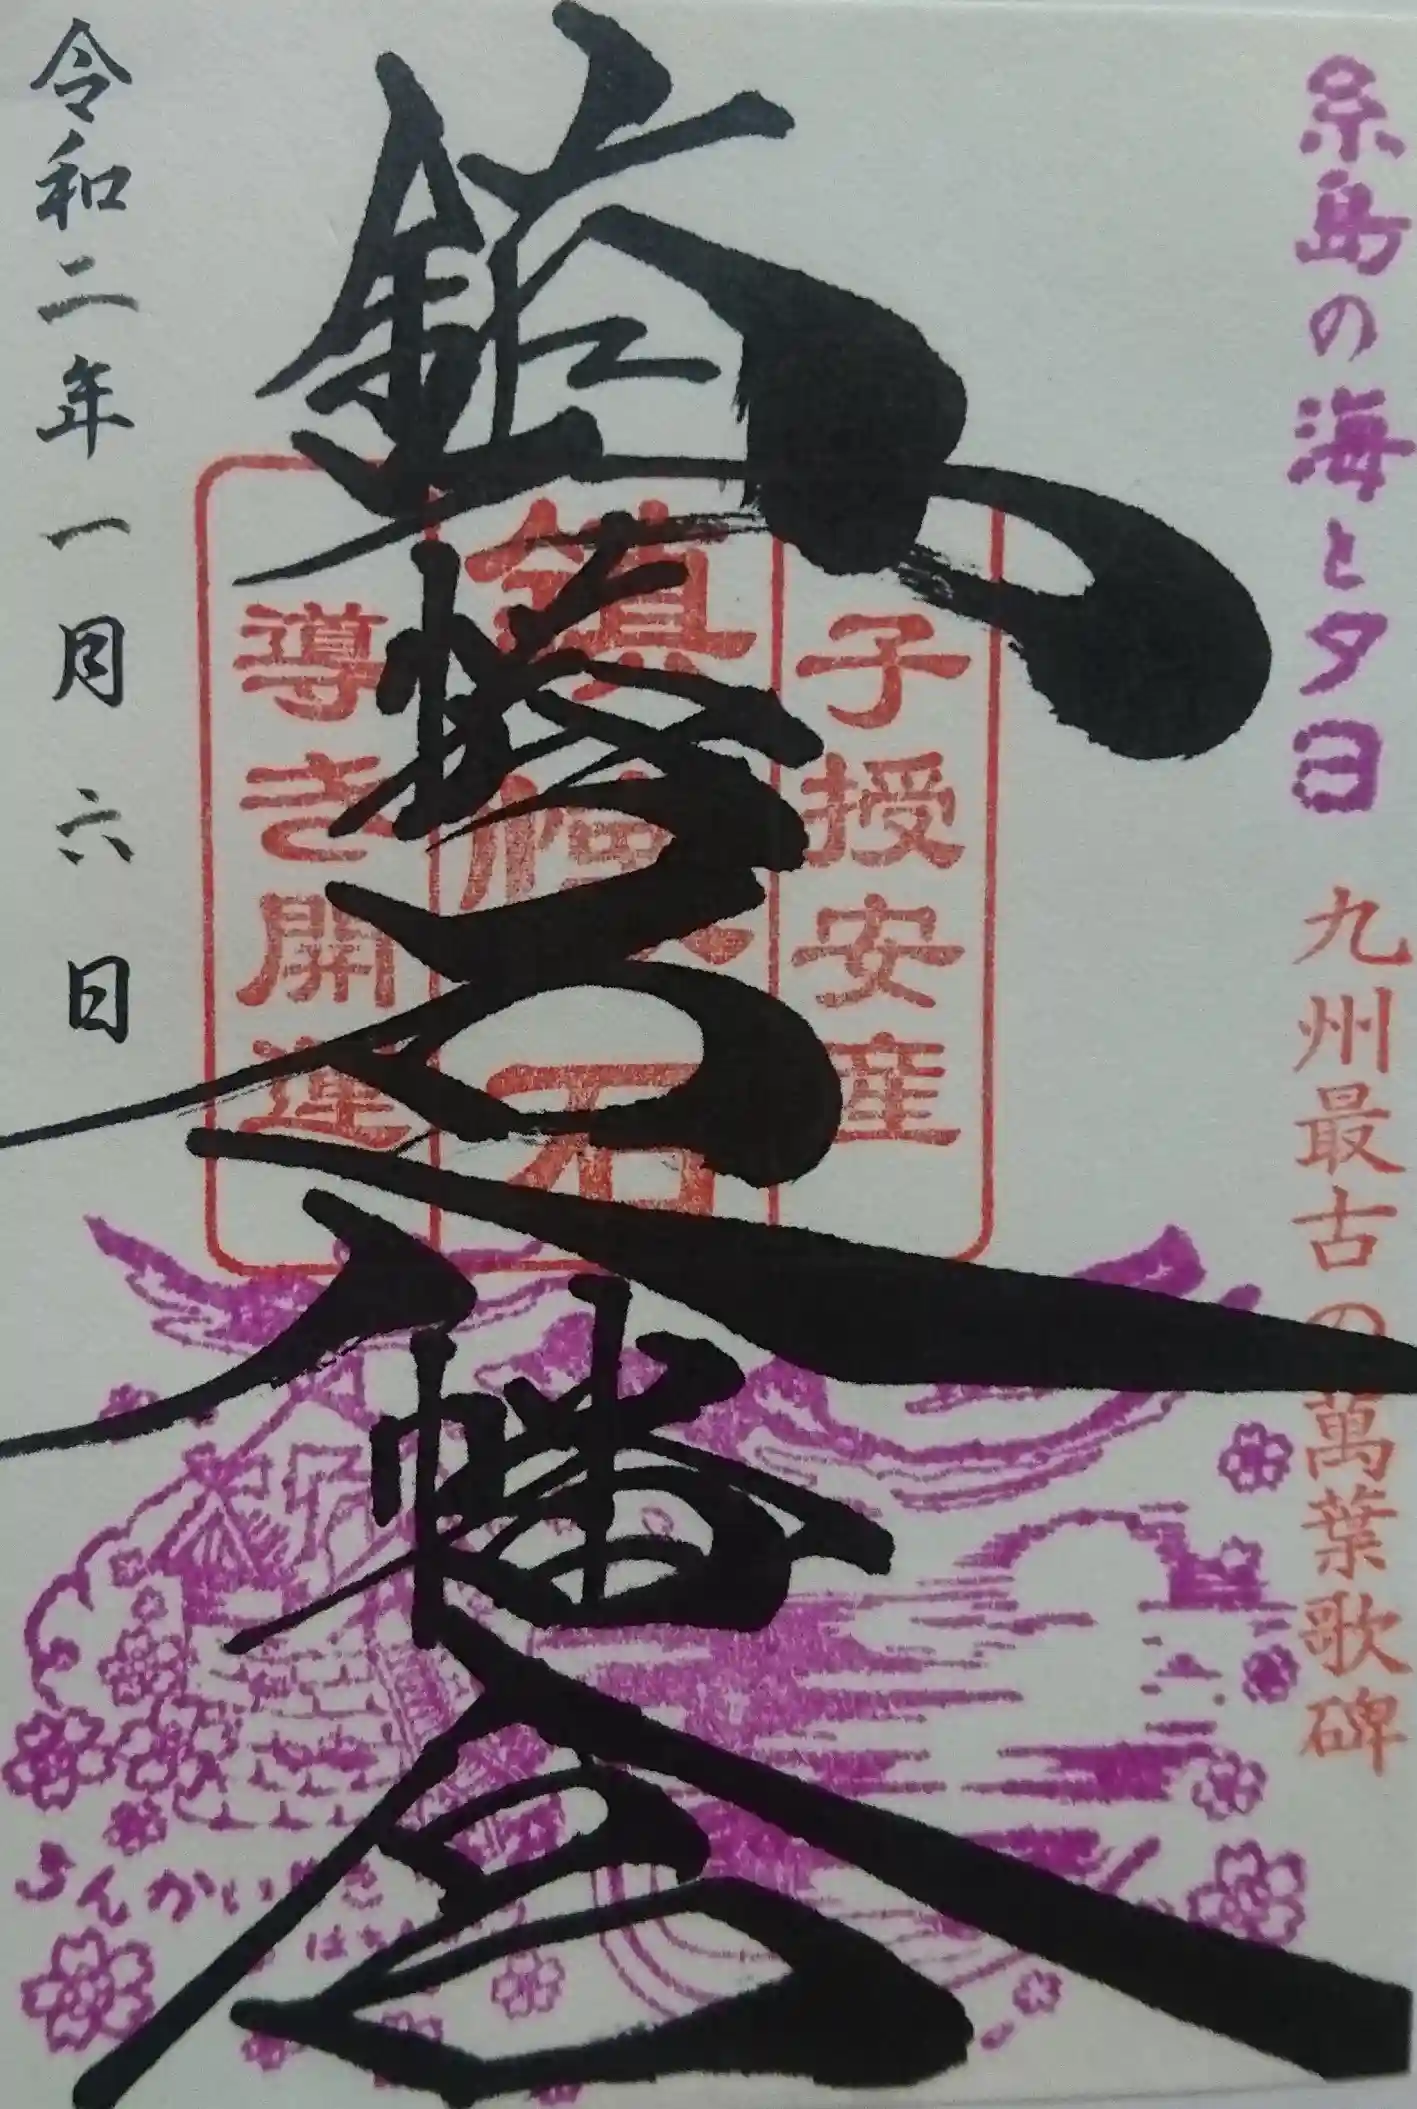 糸島の海と夕日
九州最古の萬葉歌碑
子授安産
鎮懐石
鎮懐石八幡宮
導き開運
令和二年一月六日
ちんかいせき